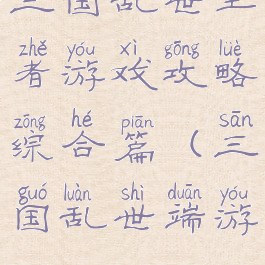 三国乱世王
zhě yóu xì gōng lüè
者游戏攻略
zōng hé piān sān
综合篇（三
guó luàn shì duān yóu
国乱世端游